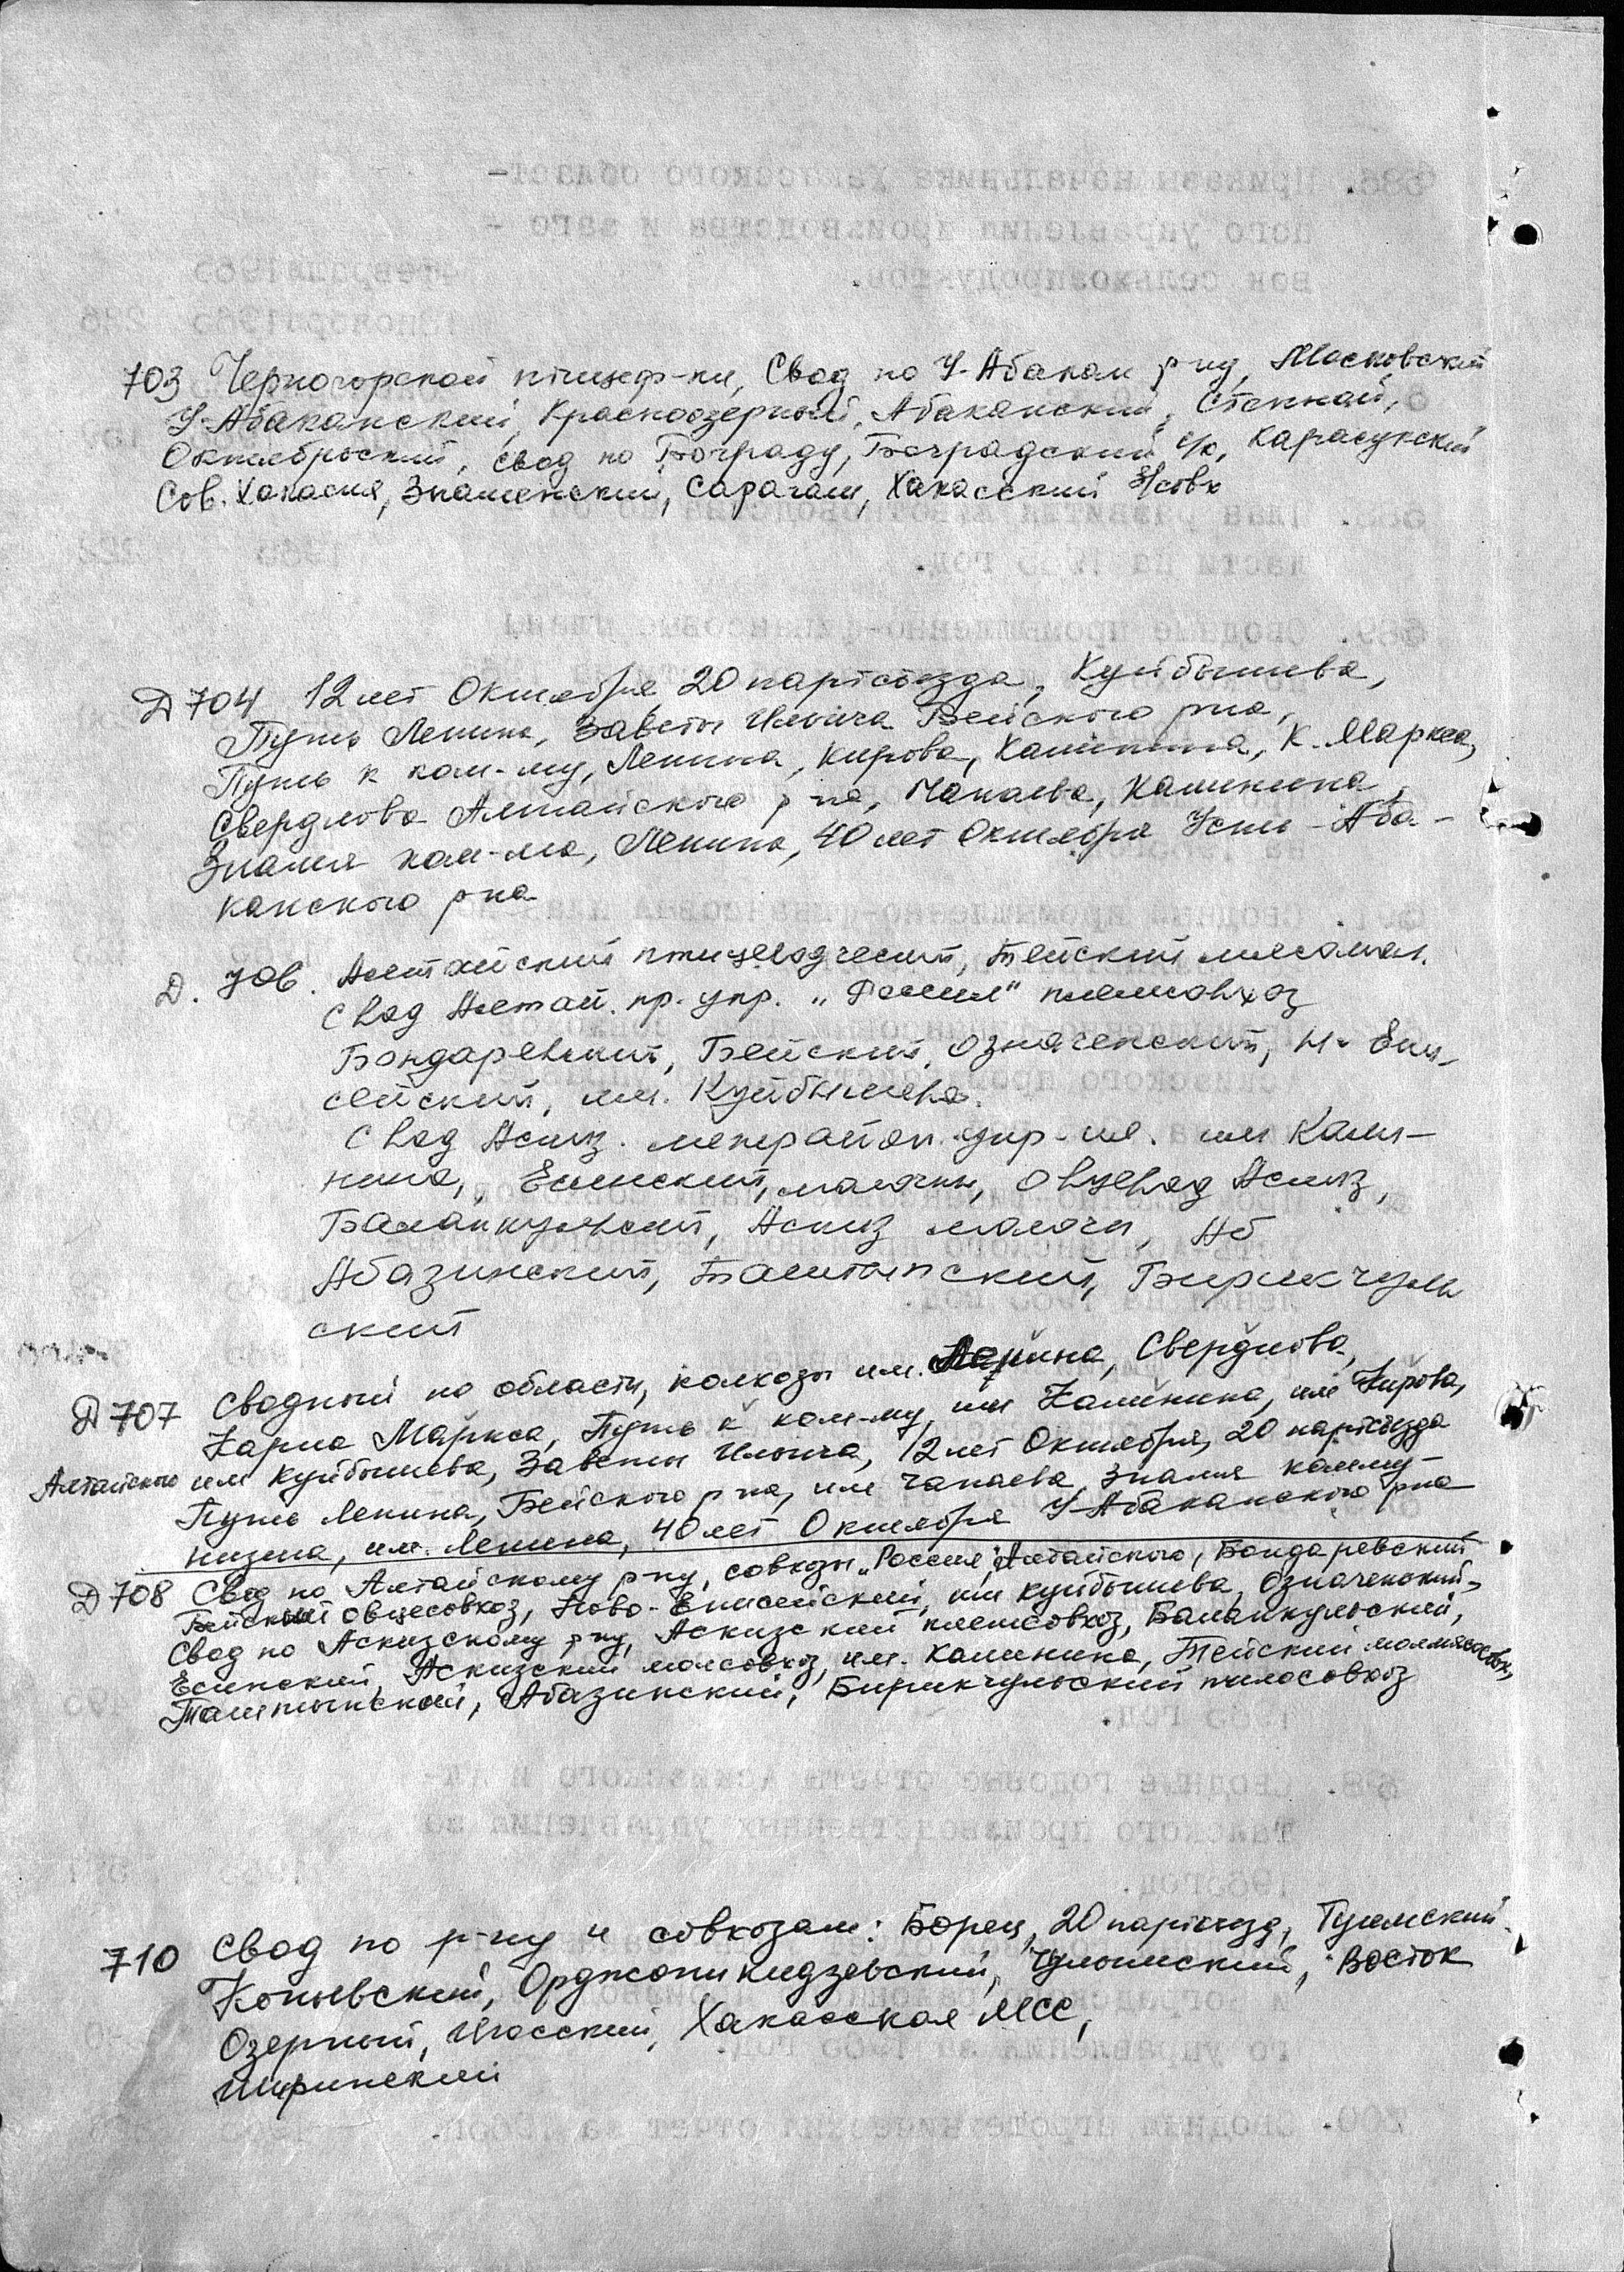 703 Черногорской птицеф-ки, Свод по У-Абакан р-ну, Московский
У-Абаканский, Красноозерный, Абаканский, Степной,
Октябрьский, свод по Бограду, Боградский с/о, Карасукский
Сов. Хакасия, Знаменский, Сарагаш, Хакасский з/совх
Д 704 12 лет Октября, 20 партсъезда, Куйбышева,
Путь Ленина, Заветы Ильича Бейского р-на,
Путь к ком-му, Ленина, Кирова, Калинина, К. Маркса,
Свердлова Алтайского р-на, Чапаева, Калинина,
Знамя ком-ма, Ленина, 40 лет Октября Усть-Аба-
канского р-на
Д. 706. Алтайский птицеводческий, Тейский мясомол.
свод Алтай. пр. упр. „Россия" племсовхоз
Бондаревский, Бейский, Означенский, Н-Ени-
сейский, им. Куйбышева.
Свод Аскиз. межрайон. упр-ия. им Кали-
нина, Есинский, молочн, овцевод Аскиз,
Баланкульский, Аскиз молочн, Аб
Абазинский, Таштыпский, Бирикчуль
ский
Д 707 Сводный по области, колхозы им. Ленина, Свердлова,
Карла Маркса, Путь к ком-му, им Калинина, им Кирова,
Алтайского им Куйбышева, Заветы Ильича, 12 лет Октября, 20 партсъезда
Путь Ленина, Бейского р-на, им Чапаева, Знамя комму-
низма, им. Ленина, 40 лет Октября У-Абаканского р-на
Д 708 Свод по Алтайскому р-ну, совхозы „Россия", Алтайского, Бондаревский
Бейский овцесовхоз, Ново-Енисейский, им Куйбышева, Означенский,
Свод по Аскизскому р-ну, Аскизский племсовхоз, Баланкульский,
Есинский, Аскизский молсовхоз, им. Калинина, Тейский молмясосовх,
Таштыпский, Абазинский, Бирикчульский
710 Свод по р-ну и совхозам: Борец, 20 партсъезд, Туимский
Копьевский, Орджоникидзевский, Чулымский, Восток
Озерный, Июсский, Хакасская МСС,
Ширинский